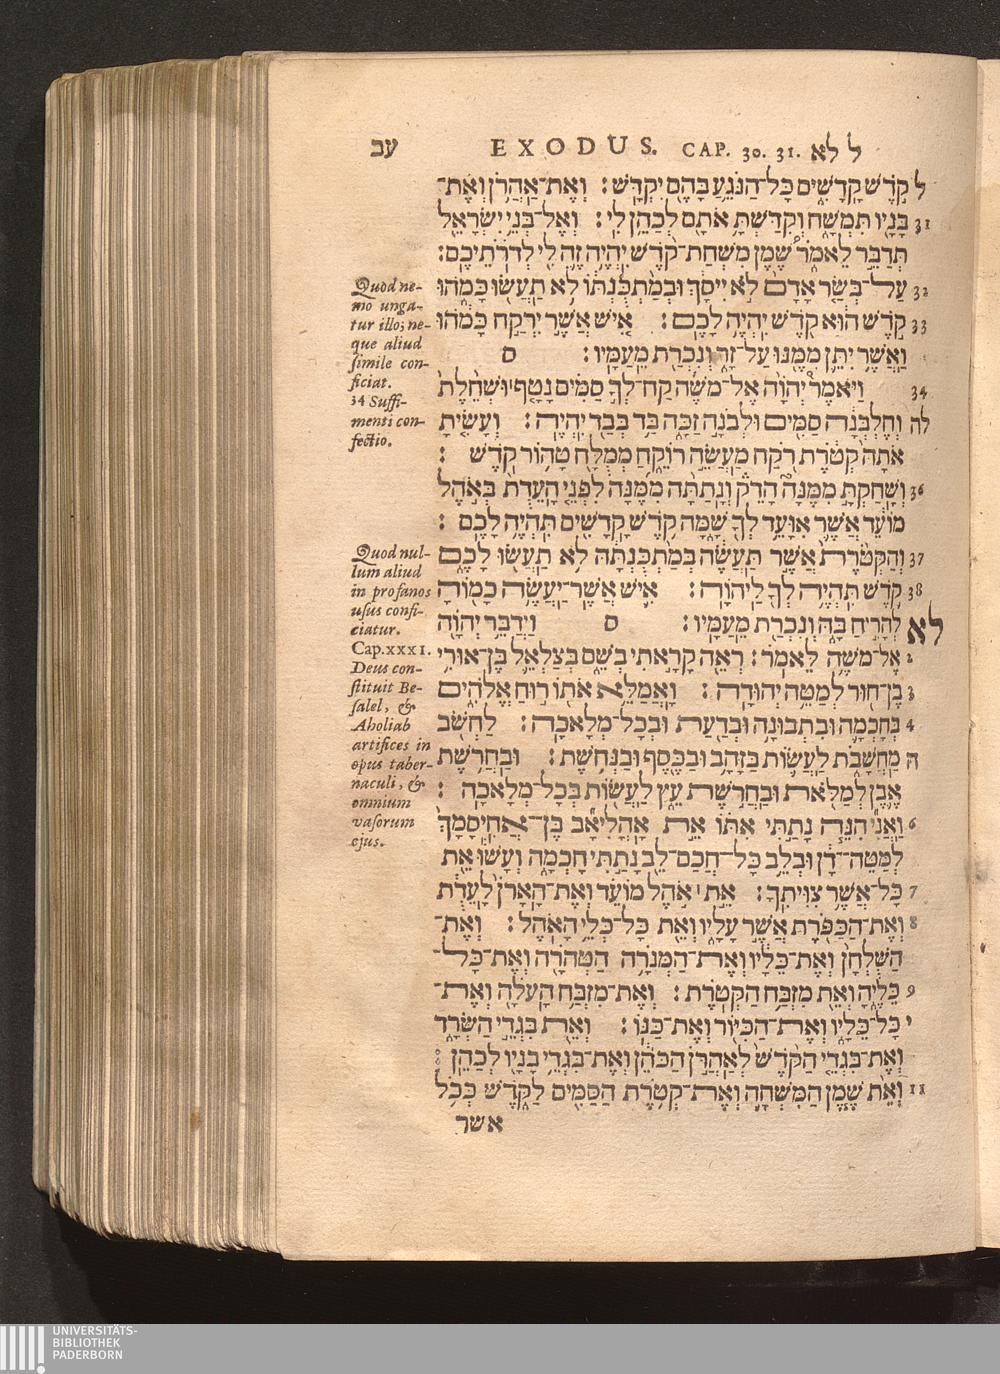 עב EXODUS. CAP. 30. 31. ל לא
ל קֹדֶשׁ קָדָשִׁים כָּל־הַנֹּגֵעַ בָּהֶם יִקְדָּשׁ׃ וְאֶת־אַהֲרֹן וְאֶת־
31 בָּנָיו תִּמְשָׁח וְקִדַּשְׁתָּ אֹתָם לְכַהֵן לִי׃ וְאֶל־בְּנֵי יִשְׂרָאֵל
תְּדַבֵּר לֵאמֹר שֶׁמֶן מִשְׁחַת־קֹדֶשׁ יִהְיֶה זֶה לִי לְדֹרֹתֵיכֶם׃
32 עַל־בְּשַׂר אָדָם לֹא יִיסָךְ וּבְמַתְכֻּנְתּוֹ לֹא תַעֲשׂוּ כָּמֹהוּ
33 קֹדֶשׁ הוּא קֹדֶשׁ יִהְיֶה לָכֶם׃ אִישׁ אֲשֶׁר יִרְקַח כָּמֹהוּ
וַאֲשֶׁר יִתֵּן מִמֶּנּוּ עַל־זָר וְנִכְרַת מֵעַמָּיו׃ ס
34 וַיֹּאמֶר יְהוָֹה אֶל־מֹשֶׁה קַח־לְךָ סַמִּים נָטָף׀ וּשְׁחֵלֶת
לה וְחֶלְבְּנָה סַמִּים וּלְבֹנָה זַכָּה בַּד בְּבַד יִהְיֶה׃ וְעָשִׂיתָ
אֹתָהּ קְטֹרֶת רֹקַח מַעֲשֵׂה רוֹקֵחַ מְמֻלָּח טָהוֹר קֹדֶשׁ׃
36 וְשָׁחַקְתָּ מִמֶּנָּה הָדֵק וְנָתַתָּה מִמֶּנָּה לִפְנֵי הָעֵדֻת בְּאֹהֶל
מוֹעֵד אֲשֶׁר אִוָּעֵד לְךָ שָׁמָּה קֹדֶשׁ קָדָשִׁים תִּהְיֶה לָכֶם׃
37 וְהַקְּטֹרֶת אֲשֶׁר תַּעֲשֶׂה בְּמַתְכֻּנְתָּהּ לֹא תַעֲשׂוּ לָכֶם
38 קֹדֶשׁ תִּהְיֶה לְךָ לַיהוָֹה׃ אִישׁ אֲשֶׁר־יַעֲשֶׂה כָמוֹהָ
לא לְהָרִיחַ בָּהּ וְנִכְרַת מֵעַמָּיו׃ ס וַיְדַבֵּר יְהוָֹה
2 אֶל־מֹשֶׁה לֵּאמֹר׃ רְאֵה קָרָאתִי בְשֵׁם בְּצַלְאֵל בֶּן־אוּרִי
3 בֶן־חוּר לְמַטֵּה יְהוּדָה׃ וָאֲמַלֵּא אֹתוֹ רוּחַ אֱלֹהִים
4 בְּחָכְמָה וּבִתְבוּנָה וּבְדַעַת וּבְכָל־מְלָאכָה׃ לַחְשֹׁב
ה מַחֲשָׁבֹת לַעֲשׂוֹת בַּזָּהָב וּבַכֶּסֶף וּבַנְּחֹשֶׁת׃ וּבַחֲרֹשֶׁת
אֶבֶן לְמַלֹּאת וּבַחֲרֹשֶׁת עֵץ לַעֲשׂוֹת בְּכָל־מְלָאכָה׃
6 וַאֲנִי הִנֵּה נָתַתִּי אִתּוֹ אֵת אָהֳלִיאָב בֶּן־אֲחִיסָמָךְ
לְמַטֵּה־דָן וּבְלֵב כָּל־חֲכַם־לֵב נָתַתִּי חָכְמָה וְעָשׂוּ אֵת
7 כָּל־אֲשֶׁר צִוִּיתִךָ׃ אֵת׀ אֹהֶל מוֹעֵד וְאֶת־הָאָרֹן לָעֵדֻת
8 וְאֶת־הַכַּפֹּרֶת אֲשֶׁר עָלָיו וְאֵת כָּל־כְּלֵי הָאֹהֶל׃ וְאֶת־
הַשֻּׁלְחָן וְאֶת־כֵּלָיו וְאֶת־הַמְּנֹרָה הַטְּהֹרָה וְאֶת־כָּל־
9 כֵּלֶיהָ וְאֵת מִזְבַּח הַקְּטֹרֶת׃ וְאֶת־מִזְבַּח הָעֹלָה וְאֶת־
י כָּל־כֵּלָיו וְאֶת־הַכִּיּוֹר וְאֶת־כַּנּוֹ׃ וְאֵת בִּגְדֵי הַשְּׂרָד
וְאֶת־בִּגְדֵי הַקֹּדֶשׁ לְאַהֲרֹן הַכֹּהֵן וְאֶת־בִּגְדֵי בָנָיו לְכַהֵן׃
11 וְאֵת שֶׁמֶן הַמִּשְׁחָה וְאֶת־קְטֹרֶת הַסַּמִּים לַקֹּדֶשׁ כְּכֹל
אשר
Quod ne-
mo unga-
tur illo; ne-
que aliud
simile con-
ficiat.
34 Suffi-
menti con-
fectio.
Quod nul-
lum aliud
in profanos
usus confi-
ciatur.
Cap. XXXI.
Deus con-
stituit Be-
salel, &
Aholiab
artifices in
opus taber-
naculi, &
omnium
vasorum
ejus.
UNIVERSITÄTS-
BIBLIOTHEK
PADERBORN